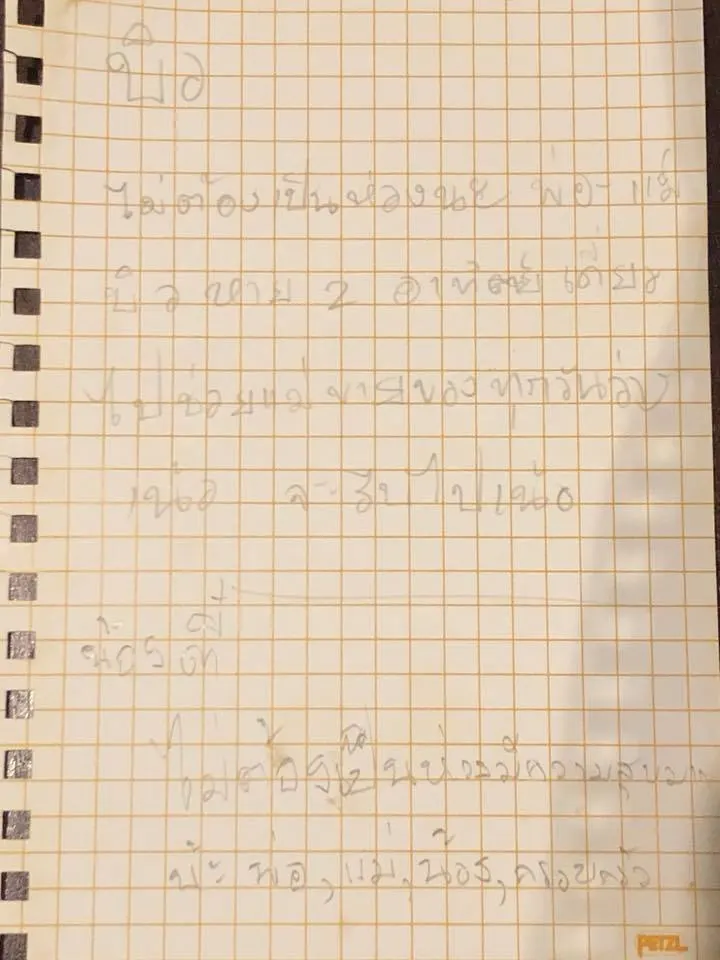 บิว
ไม่ต้องเป็นห่วงนะ พ่อ-แม่
บิวหาย 2 อาทิตย์ เดี๋ยว
ไปช่วยแม่ขายของทุกวัน
จะรีบไป
น้องตี๋
ไม่ต้องเป็นห่วงมีความสุข
พ่อ, แม่, น้อง, ครอบครัว
PETZL